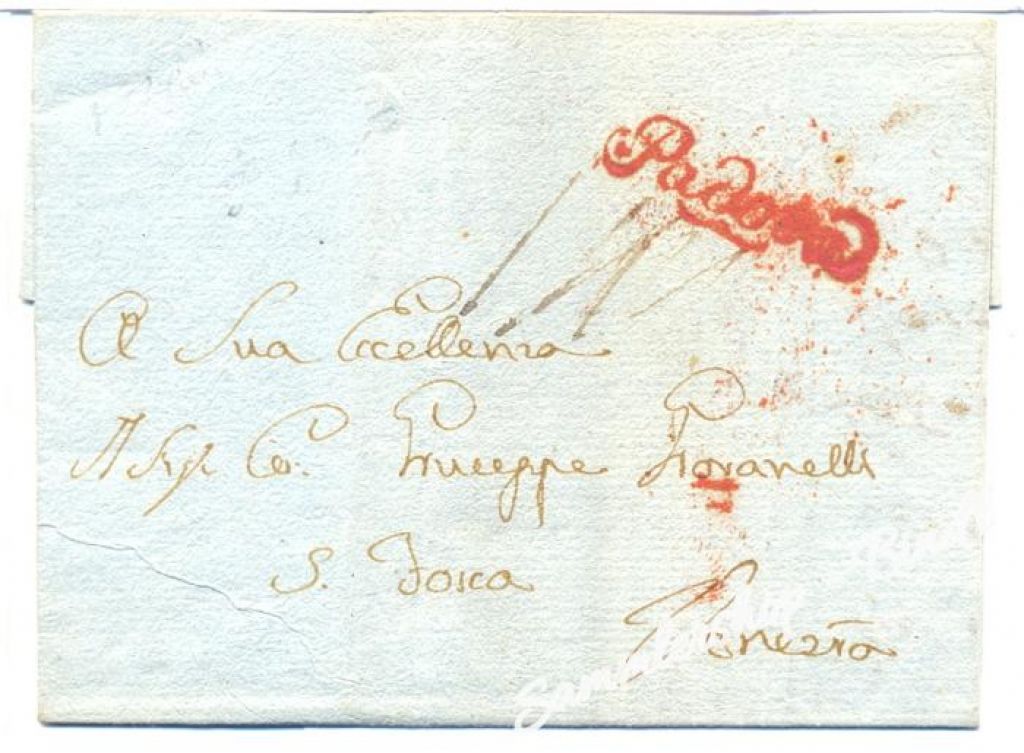 Padova
A Sua Eccellenza
Il Sigr Co: Giuseppe Giovanelli
S. Fosca
Venezia